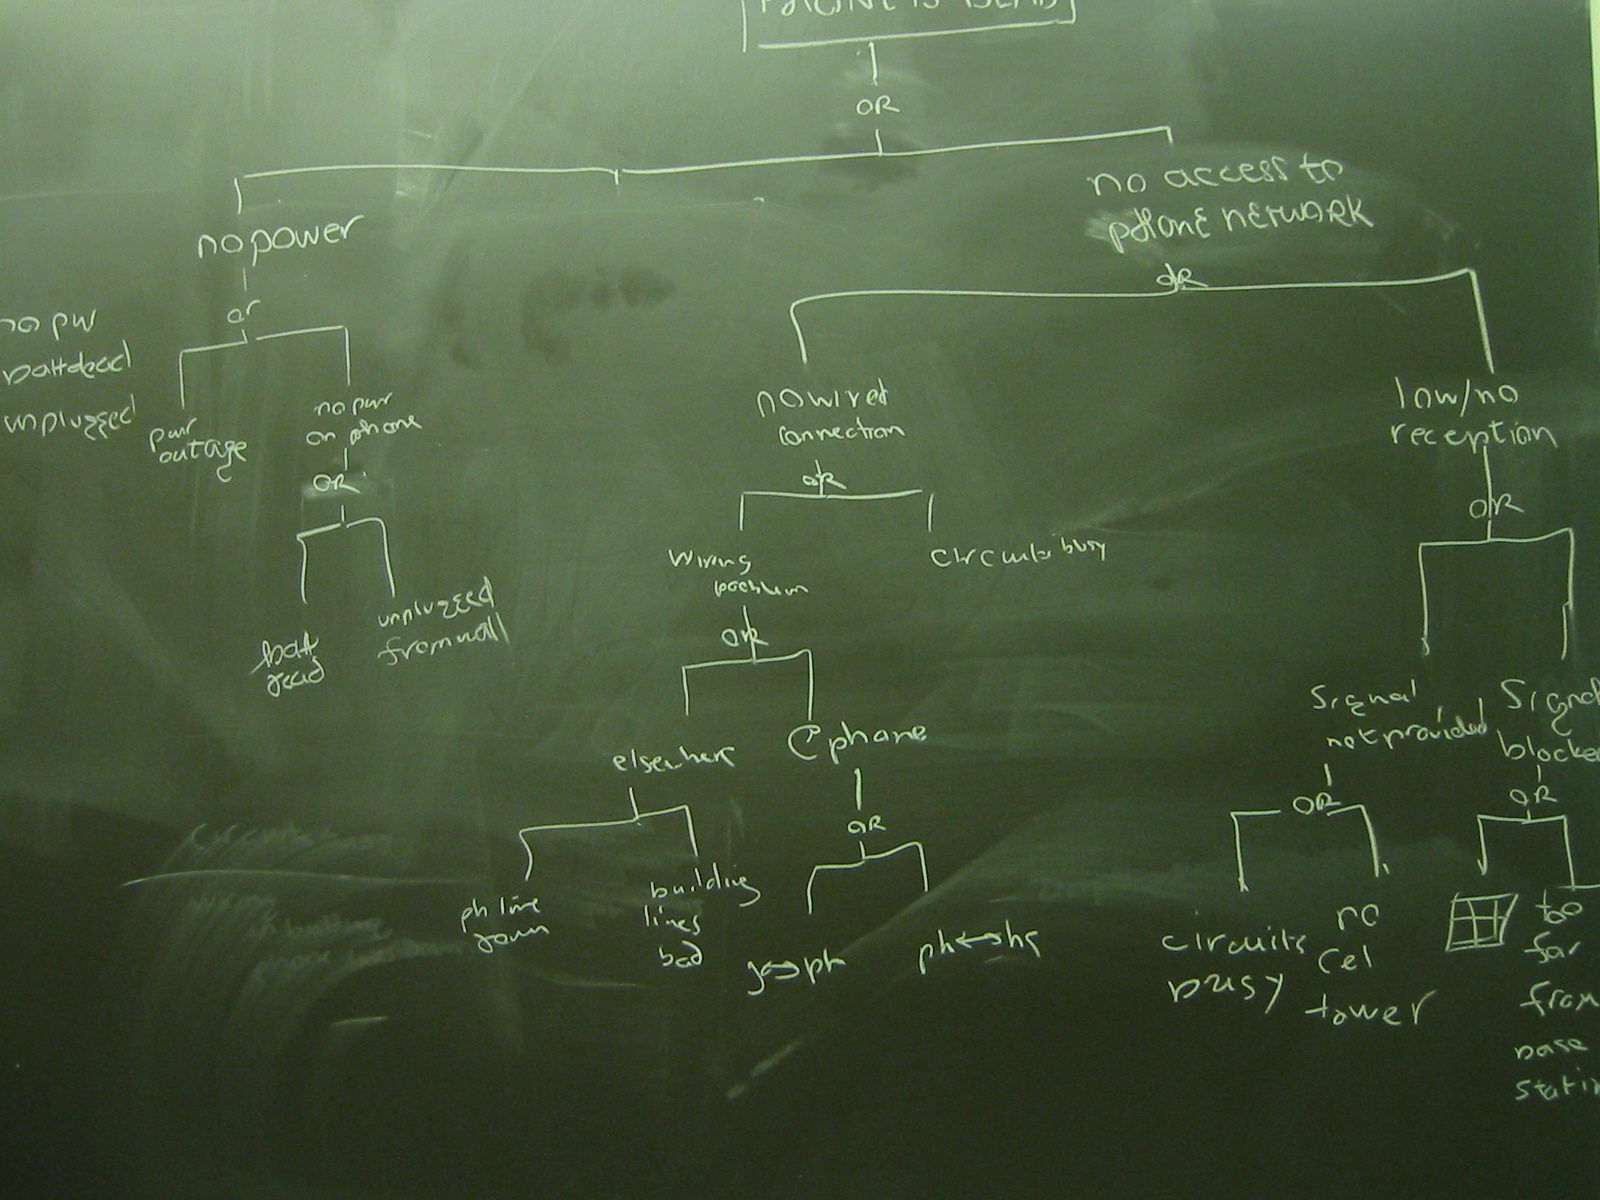 PHONE IS DEAD
OR
no access to
PHONE NETWORK
no power
OR
or
no pw
batt dead
unplugged
pwr
outage
no pwr
on phone
OR
batt
dead
unplugged
from wall
no wired
connection
OR
wiring
problem
circuits busy
OR
elsewhere
@phone
OR
ph line
down
building
lines
bad
j↔ph
ph↔hs
low/no
reception
OR
signal
not provided
Signal
blocke
OR
OR
circuits
busy
no
cel
tower
too
far
from
base
stati